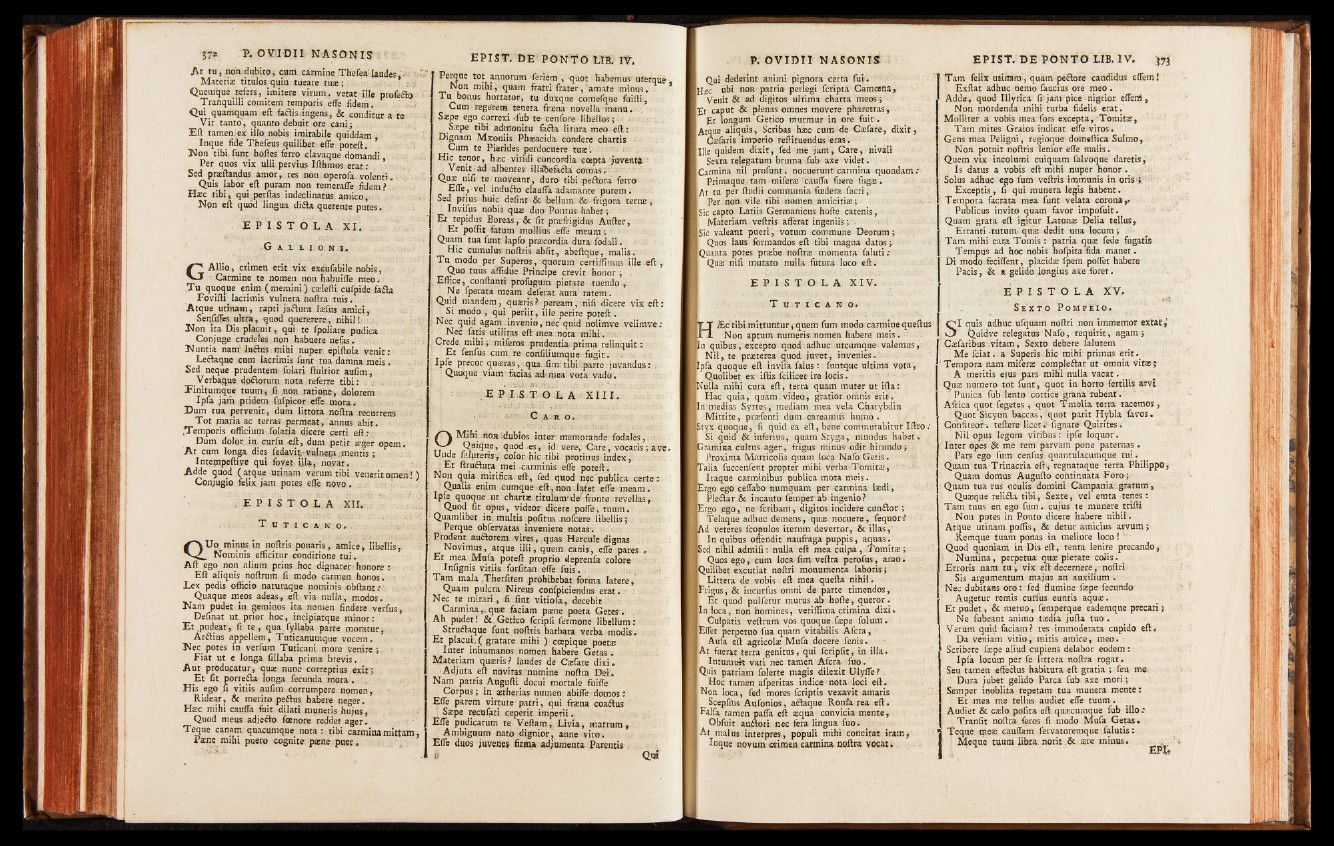 372 P. OVIDII NASONIS
At tu, non dubito, cum carmine Theſea laudes,
Materiæ titulos quin tueare tuæ;
Quemque refers, imitere virum. vetat ille profecto
Tranquilli comitem temporis eſſe fidem.
Qui quamquam eſt factis ingens, & conditur a te
Vir tanto, quanto debuit ore cani;
Eſt tamen ex illo nobis imitabile quiddam,
Inque fide Theſeus quilibet eſſe poteſt.
Non tibi ſunt hoſtes ferro clavaque domandi,
Per quos vix ulli pervius Iſthmos erat:
Sed præſtandus amor, res non operoſa volenti.
Quis labor eſt puram non temeraſſe fidem?
Hæc tibi, qui perſtas indeclinatus amico,
Non eſt quod lingua dicta querente putes.
EPISTOLA XI.
GALLIONI.
GAllio, crimen erit vix excuſabile nobis,
Carmine te nomen non habuiſſe meo.
Tu quoque enim (memini) cæleſti cuſpide facta
Foviſti lacrimis vulnera noſtra tuis.
Atque utinam, rapti jactura læſus amici,
Senſiſſes ultra, quod quererere, nihil!
Non ita Dis placuit, qui te ſpoliare pudica
Conjuge crudeles non habuere nefas.
Nuntia nam luctus mihi nuper epiſtola venit:
Lectaque cum lacrimis ſunt tua damna meis.
Sed neque prudentem ſolari ſtultior auſim,
Verbaque doctorum nota referre tibi:
Finitumque tuum, ſi non ratione, dolorem
Ipſa jam pridem ſuſpicor eſſe mora.
Dum tua pervenit, dum littora noſtra recurrens
Tot maria ac terras permeat, annus abit.
Temporis officium ſolatia dicere certi eſt:
Dum dolor in curſu eſt, dum petit æger opem.
At cum longa dies ſedavit vulnera mentis;
Intempeſtive qui fovet illa, novat.
Adde quod (atque utinam verum tibi venerit omen!)
Conjugio felix jam potes eſſe novo.
EPISTOLA XII.
TUTICANO.
QUo minus in noſtris ponaris, amice, libellis,
Nominis efficitur conditione tui.
Aſt ego non alium prius hoc dignarer honore:
Eſt aliquis noſtrum ſi modo carmen honos.
Lex pedis officio naturaque nominis obſtant:
Quaque meos adeas, eſt via nulla, modos.
Nam pudet in geminos ita nomen findere verſus,
Deſinat ut prior hoc, incipiatque minor:
Et pudeat, ſi te, qua ſyllaba parte moratur,
Arctius appellem, Tuticanumque vocem.
Nec potes in verſum Tuticani more venire;
Fiat ut e longa ſillaba prima brevis.
Aut producatur, quæ nunc correptius exit;
Et ſit porrecta longa ſecunda mora.
His ego ſi vitiis auſim corrumpere nomen,
Ridear, & merito pectus habere neger.
Hæc mihi cauſſa fuit dilati muneris hujus,
Quod meus adjecto fœnore reddet ager.
Teque canam quacumque nota: tibi carmina mittam,
Pæne mihi puero cognite pæne puer.
EPIST. DE PONTO LIB. IV.
Perque tot annorum ſeriem, quot habemus uterque,
Non mihi, quam fratri frater, amate minus.
Tu bonus hortator, tu duxque comeſque fuiſti,
Cum regerem tenera fræna novella manu.
Sæpe ego correxi ſub te cenſore libellos;
Sæpe tibi admonitu facta litura meo eſt:
Dignam Mæoniis Phæacida condere chartis
Cum te Pierides perdocuere tuæ.
Hic tenor, hæc viridi concordia cœpta juventa
Venit ad albentes illabefacta comas.
Quæ niſi te moveant, duro tibi pectora ferro
Eſſe, vel inducto clauſſa adamante putem.
Sed prius huic deſint & bellum & frigora terræ,
Inviſus nobis quæ duo Pontus habet;
Et tepidus Boreas, & ſit præfrigidus Auſter,
Et poſſit fatum mollius eſſe meum;
Quam tua ſunt lapſo præcordia dura ſodali.
Hic cumulus noſtris abſit, abeſtque, malis.
Tu modo per Superos, quorum certiſſimus ille eſt,
Quo tuus aſſidue Principe crevit honor;
Effice, conſtanti profugum pietate tuendo,
Ne ſperata meam deferat aura ratem.
Quid mandem, quæris? peream, niſi dicere vix eſt:
Si modo, qui periit, ille perire poteſt.
Nec quid agam invenio, nec quid nolimve velimve:
Nec ſatis utilitas eſt mea nota mihi.
Crede mihi; miſeros prudentia prima relinquit:
Et ſenſus cum re conſiliumque fugit.
Ipſe precor quæras, qua ſim tibi parte juvandus:
Quoque viam facias ad mea vota vado.
EPISTOLA XIII.
CARO.
O Mihi non dubios inter memorande ſodales,
Quique, quod es, id vere, Care, vocaris; ave.
Unde ſaluteris, color hic tibi protinus index,
Et ſtructura mei carminis eſſe poteſt.
Non quia mirifica eſt, ſed quod nec publica certe:
Qualis enim cumque eſt, non latet eſſe meam.
Ipſe quoque ut chartæ titulum de fronte revellas,
Quod ſit opus, videor dicere poſſe, tuum.
Quamlibet in multis poſitus noſcere libellis;
Perque obſervatas inveniere notas.
Prodent auctorem vires, quas Hercule dignas
Novimus, atque illi, quem canis, eſſe pares.
Et mea Muſa poteſt proprio deprenſa colore
Inſignis vitiis forſitan eſſe ſuis.
Tam mala Therſiten prohibebat forma latere,
Quam pulcra Nireus conſpiciendus erat.
Nec te mirari, ſi ſint vitioſa, decebit
Carmina, quæ faciam pæne poeta Getes.
Ah pudet! & Getico ſcripſi ſermone libellum:
Structaque ſunt noſtris barbara verba modis.
Et placui (gratare mihi) cœpique poetæ
Inter inhumanos nomen habere Getas.
Materiam quæris? laudes de Cæſare dixi.
Adjuta eſt novitas numine noſtra Dei.
Nam patris Auguſti docui mortale fuiſſe
Corpus; in ætherias numen abiiſſe domos:
Eſſe parem virtute patri, qui fræna coactus
Sæpe recuſati ceperit imperii.
Eſſe pudicarum te Veſtam, Livia, matrum,
Ambiguum nato dignior, anne viro.
Eſſe duos juvenes firma adjumenta Parentis
Qui
P. OVIDII NASONIS
Qui dederint animi pignora certa ſui.
Hæc ubi non patria perlegi ſcripta Camœna,
Venit & ad digitos ultima charta meos;
Et caput & plenas omnes movere pharetras,
Et longum Getico murmur in ore fuit.
Atque aliquis, Scribas hæc cum de Cæſare, dixit,
Cæſaris imperio reſtituendus eras.
Ille quidem dixit, ſed me jam, Care, nivali
Sexta relegatum bruma ſub axe videt.
Carmina nil proſunt. nocuerunt carmina quondam:
Primaque tam miſeræ cauſſa fuere fugæ.
At tu per ſtudii communia fœdera ſacri,
Per non vile tibi nomen amicitiæ;
Sic capto Latiis Germanicus hoſte catenis,
Materiam veſtris afferat ingeniis;
Sic valeant pueri, votum commune Deorum;
Quos laus formandos eſt tibi magna datos;
Quanta potes præbe noſtræ momenta ſaluti:
Quæ niſi mutato nulla futura loco eſt.
EPISTOLA XIV.
TUTICANO.
HÆc tibi mittuntur, quem ſum modo carmine queſtus
Non aptum numeris nomen habere meis.
In quibus, excepto quod adhuc utcumque valemus,
Nil, te præterea quod juvet, invenies.
Ipſa quoque eſt inviſa ſalus: ſuntque ultima vota,
Quolibet ex iſtis ſcilicet ire locis.
Nulla mihi cura eſt, terra quam muter ut iſta:
Hac quia, quam video, gratior omnis erit.
In medias Syrtes, mediam mea vela Charybdin
Mittite, præſenti dum careamus humo.
Styx quoque, ſi quid ea eſt, bene commutabitur Iſtro:
Si quid & inferius, quam Styga, mundus habet.
Gramina cultus ager, frigus minus odit hirundo;
Proxima Marticolis quam loca Naſo Getis.
Talia ſuccenſent propter mihi verba Tomitæ,
Iraque carminibus publica mota meis.
Ergo ego ceſſabo numquam per carmina lædi,
Plectar & incauto ſemper ab ingenio?
Ergo ego, ne ſcribam, digitos incidere cunctor;
Telaque adhuc demens, quæ nocuere, ſequor?
Ad veteres ſcopulos iterum devertor, & illas,
In quibus offendit naufraga puppis, aquas.
Sed nihil admiſi: nulla eſt mea culpa, Tomitæ;
Quos ego, cum loca ſim veſtra peroſus, amo.
Quilibet excutiat noſtri monumenta laboris;
Littera de vobis eſt mea queſta nihil.
Frigus, & incurſus omni de parte timendos,
Et quod pulſetur murus ab hoſte, queror.
In loca, non homines, veriſſima crimina dixi.
Culpatis veſtrum vos quoque ſæpe ſolum.
Eſſet perpetuo ſua quam vitabilis Aſcra,
Auſa eſt agricolæ Muſa docere ſenis.
At fuerat terra genitus, qui ſcripſit, in illa.
Intumuit vati nec tamen Aſcra ſuo.
Quis patriam ſolerte magis dilexit Ulyſſe?
Hoc tamen aſperitas indice nota loci eſt.
Non loca, ſed mores ſcriptis vexavit amaris
Scepſius Auſonios, actaque Roma rea eſt.
Falſa tamen paſſa eſt æqua convicia mente,
Obfuit auctori nec fera lingua ſuo.
At malus interpres, populi mihi concitat iram,
Inque novum crimen carmina noſtra vocat.
EPIST. DE PONTO LIB. IV. 373
Tam felix utinam, quam pectore candidus eſſem!
Exſtat adhuc nemo ſaucius ore meo.
Adde, quod Illyrica ſi jam pice nigrior eſſem,
Non mordenda mihi turba fidelis erat.
Molliter a vobis mea ſors excepta, Tomitæ,
Tam mites Graios indicat eſſe viros.
Gens mea Peligni, regioque domeſtica Sulmo,
Non potuit noſtris lenior eſſe malis.
Quem vix incolumi cuiquam ſalvoque daretis,
Is datus a vobis eſt mihi nuper honor.
Solus adhuc ego ſum veſtris immunis in oris;
Exceptis, ſi qui munera legis habent.
Tempora ſacrata mea ſunt velata corona,
Publicus invito quam favor impoſuit.
Quam grata eſt igitur Latonæ Delia tellus,
Erranti tutum quæ dedit una locum;
Tam mihi cara Tomis: patria quæ ſede fugatis
Tempus ad hoc nobis hoſpita fida manet.
Di modo feciſſent, placidæ ſpem poſſet habere
Pacis, & a gelido longius axe foret.
EPISTOLA XV.
SEXTO POMPEIO.
SI quis adhuc uſquam noſtri non immemor extat,
Quidve relegatus Naſo, requirit, agam;
Cæſaribus vitam, Sexto debere ſalutem
Me ſciat. a Superis hic mihi primus erit.
Tempora nam miſeræ complectar ut omnia vitæ;
A meritis ejus pars mihi nulla vacat.
Quæ numero tot ſunt, quot in horto fertilis arvi
Punica ſub lento cortice grana rubent.
Africa quot ſegetes, quot Tmolia terra racemos,
Quot Sicyon baccas, quot parit Hybla favos.
Confiteor. teſtere licet. ſignate Quirites.
Nil opus legum viribus: ipſe loquor.
Inter opes & me rem parvam pone paternas.
Pars ego ſum cenſus quantulacumque tui.
Quam tua Trinacria eſt, regnataque terra Philippo,
Quam domus Auguſto continuata Foro;
Quam tua rus oculis domini Campania gratum,
Quæque relicta tibi, Sexte, vel emta tenes:
Tam tuus en ego ſum. cujus te munere triſti
Non potes in Ponto dicere habere nihil.
Atque utinam poſſis, & detur amicius arvum;
Remque tuam ponas in meliore loco!
Quod quoniam in Dis eſt, tenta lenire precando,
Numina, perpetua quæ pietate colis.
Erroris nam tu, vix eſt decernere, noſtri
Sis argumentum majus an auxilium.
Nec dubitans oro: ſed flumine ſæpe ſecundo
Augetur remis curſus euntis aquæ.
Et pudet, & metuo, ſemperque eademque precari;
Ne ſubeant animo tædia juſta tuo.
Verum quid faciam? res immoderata cupido eſt.
Da veniam vitio, mitis amice, meo.
Scribere ſæpe aliud cupiens delabor eodem:
Ipſa locum per ſe littera noſtra rogat.
Seu tamen effectus habitura eſt gratia; ſeu me
Dura jubet gelido Parca ſub axe mori;
Semper inoblita repetam tua munera mente:
Et mea me tellus audiet eſſe tuum.
Audiet & cælo poſita eſt quæcumque ſub illo:
Tranſit noſtra feros ſi modo Muſa Getas.
Teque meæ cauſſam ſervatoremque ſalutis:
Meque tuum libra norit & ære minus.
EPI.